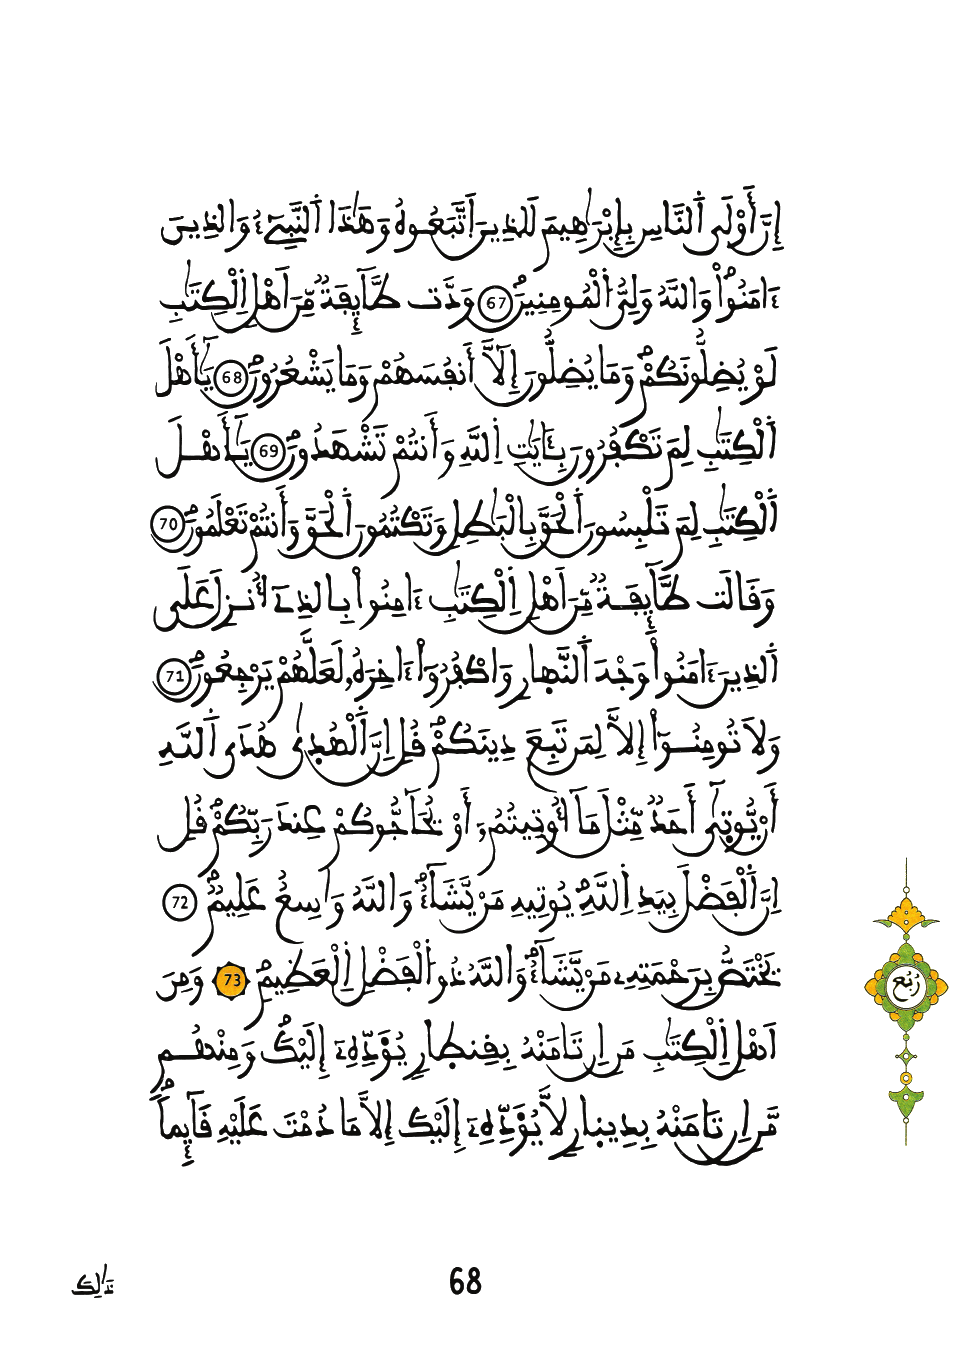 إِنَّ أَوْلَى اَ۬لنَّاسِ بِإِبْرَٰهِيمَ لَلذِينَ اَ۪تَّبَعُوهُ وَهَٰذَا اَ۬لنَّبِےٓءُ وَالذِينَ
ءَامَنُواْۖ وَاللَّهُ وَلِيُّ اُ۬لْمُومِنِينَۖ 67 وَدَّت طَّآئِفَةٞ مِّنَ اَهْلِ اِ۬لْكِتَٰبِ
لَوْ يُضِلُّونَكُمْۖ وَمَا يُضِلُّونَ إِلَّآ أَنفُسَهُمْ وَمَا يَشْعُرُونَۖ 68 يَٰٓأَهْلَ
اَ۬لْكِتَٰبِ لِمَ تَكْفُرُونَ بِـَٔايَٰتِ اِ۬للَّهِ وَأَنتُمْ تَشْهَدُونَۖ 69 يَٰٓأَهْلَ
اَ۬لْكِتَٰبِ لِمَ تَلْبِسُونَ اَ۬لْحَقَّ بِالْبَٰطِلِ وَتَكْتُمُونَ اَ۬لْحَقَّ وَأَنتُمْ تَعْلَمُونَۖ 70
وَقَالَت طَّآئِفَةٞ مِّنَ اَهْلِ اِ۬لْكِتَٰبِ ءَامِنُواْ بِالذِےٓ أُنزِلَ عَلَى
اَ۬لذِينَ ءَامَنُواْ وَجْهَ اَ۬لنَّهارِ وَاكْفُرُوٓاْ ءَاخِرَهُۥ لَعَلَّهُمْ يَرْجِعُونَۖ 71
وَلَا تُومِنُوٓاْ إِلَّا لِمَن تَبِعَ دِينَكُمْۖ قُلِ اِنَّ اَ۬لْهُد۪ىٰ هُدَى اَ۬للَّهِ
أَنْ يُّوتَىٰٓ أَحَدٞ مِّثْلَ مَآ أُوتِيتُمُۥٓ أَوْ يُحَآجُّوكُمْ عِندَ رَبِّكُمْۖ قُلِ
اِنَّ اَ۬لْفَضْلَ بِيَدِ اِ۬للَّهِۖ يُوتِيهِ مَنْ يَّشَآءُۖ وَاللَّهُ وَٰسِعٌ عَلِيمٞۖ 72
يَخْتَصُّ بِرَحْمَتِهِۦ مَنْ يَّشَآءُۖ وَاللَّهُ ذُو اُ۬لْفَضْلِ اِ۬لْعَظِيمِۖ 73 وَمِنَ
اَهْلِ اِ۬لْكِتَٰبِ مَنِ اِن تَامَنْهُ بِقِنط۪ارٖ يُؤَدِّهِۦٓ إِلَيْكَۖ وَمِنْهُم
مَّنِ اِن تَامَنْهُ بِدِين۪ارٖ لَّا يُؤَدِّهِۦٓ إِلَيْكَ إِلَّا مَا دُمْتَ عَلَيْهِ قَآئِماٗۖ
رُبُع
ذَٰلِكَ
68